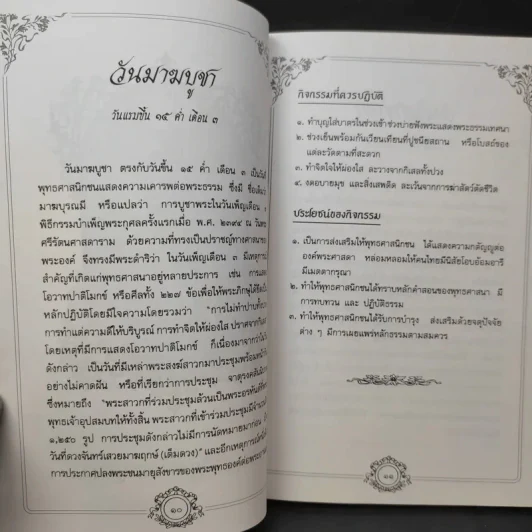 วันมาฆบูชา
วันแรมขึ้น ๑๕ ค่ำ เดือน ๓
วันมาฆบูชา ตรงกับวันขึ้น ๑๕ ค่ำ เดือน ๓ เป็นวันที่
พุทธศาสนิกชนแสดงความเคารพต่อพระธรรม ซึ่งมี ชื่อเต็มว่า
มาฆบุรณมี หรือแปลว่า การบูชาพระในวันเพ็ญเดือน ๓
พิธีกรรมบำเพ็ญพระกุศลครั้งแรกเมื่อ พ.ศ. ๒๓๙๔ ณ วัดพระ
ศรีรัตนศาสดาราม ด้วยความที่ทรงเป็นปราชญ์ทางศาสนาของ
พระองค์ จึงทรงมีพระดำริว่า ในวันเพ็ญเดือน ๓ มีเหตุการณ์
สำคัญที่เกิดแก่พุทธศาสนาอยู่หลายประการ เช่น การแสดง
โอวาทปาติโมกข์ หรือศีลทั้ง ๒๒๗ ข้อเพื่อให้พระภิกษุได้ยึดถือ
หลักปฏิบัติโดยมีใจความโดยรวมว่า "การไม่ทำบาปทั้งปวง
การทำแต่ความดีให้บริบูรณ์ การทำจิตให้ผ่องใส ปราศจากกิเลส"
โดยเหตุที่มีการแสดงโอวาทปาติโมกข์ ก็เนื่องมาจากว่าในวัน
ดังกล่าว เป็นวันที่มีเหล่าพระสงฆ์สาวกมาประชุมพร้อมหน้ากัน
อย่างไม่คาดฝัน หรือที่เรียกว่าการประชุม จาตุรงคสันนิบาต
ซึ่งหมายถึง "พระสาวกที่ร่วมประชุมล้วนเป็นพระอรหันต์ที่พระ
พุทธเจ้าอุปสมบทให้ทั้งสิ้น พระสาวกที่เข้าร่วมประชุมมีจำนวน
๑,๒๕๐ รูป การประชุมดังกล่าวไม่มีการนัดหมายมาก่อน
วันที่ดวงจันทร์เสวยมาฆฤกษ์ (เต็มดวง)" และอีกเหตุการณ์หนึ่งคือ
การประกาศปลงพระชนมายุสังขารของพระพุทธองค์ต่อพระอานนท์
๑๐
กิจกรรมที่ควรปฏิบัติ
๑. ทำบุญใส่บาตรในช่วงเช้าช่วงบ่ายฟังพระแสดงพระธรรมเทศนา
๒. ช่วงเย็นพร้อมกันเวียนเทียนที่ปูชนียสถาน หรือโบสถ์ของ
แต่ละวัดตามที่สะดวก
๓. ทำจิตใจให้ผ่องใส ละวางจากกิเลสทั้งปวง
๔. งดอบายมุข และสิ่งเสพติด ละเว้นจากการฆ่าสัตว์ตัดชีวิต
ประโยชน์ของกิจกรรม
๑. เป็นการส่งเสริมให้พุทธศาสนิกชน ได้แสดงความกตัญญูต่อ
องค์พระศาสดา หล่อหลอมให้คนไทยมีนิสัยโอบอ้อมอารี
มีเมตตากรุณา
๒. ทำให้พุทธศาสนิกชนได้ทราบหลักคำสอนของพุทธศาสนา มี
การทบทวน และ ปฏิบัติธรรม
๓. ทำให้พุทธศาสนิกชนได้รับการบำรุง ส่งเสริมด้วยจตุปัจจัย
ต่าง ๆ มีการเผยแพร่หลักธรรมตามสมควร
๑๑